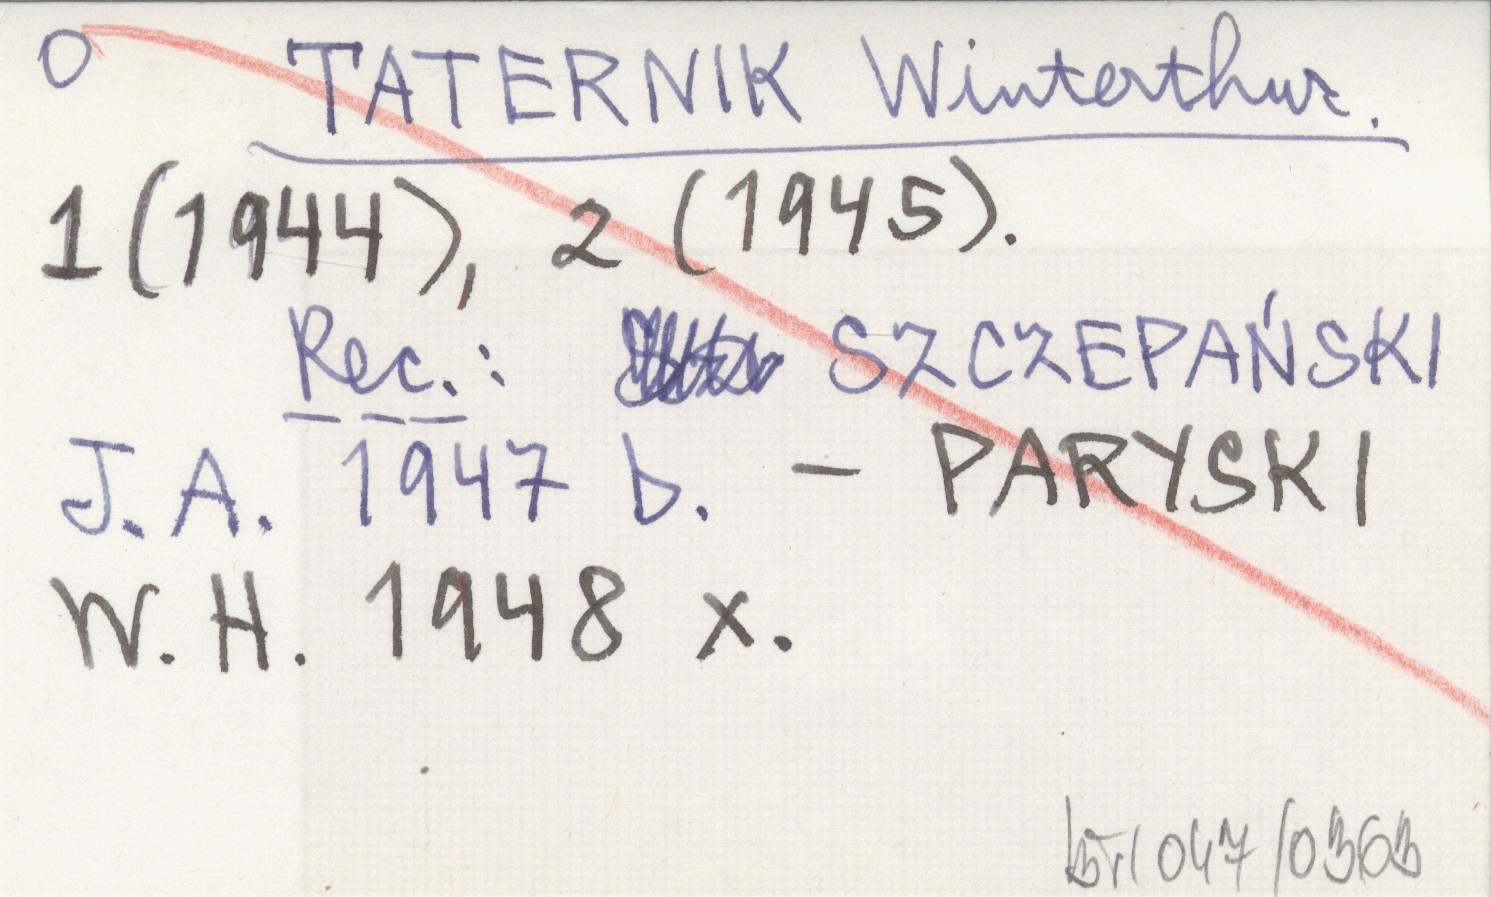 O TATERNIK Winterthur.
1 (1944), 2 (1945).
Rec.: SZCZEPAŃSKI
J.A. 1947 b. – PARYSKI
W.H. 1948 x.
047/0363